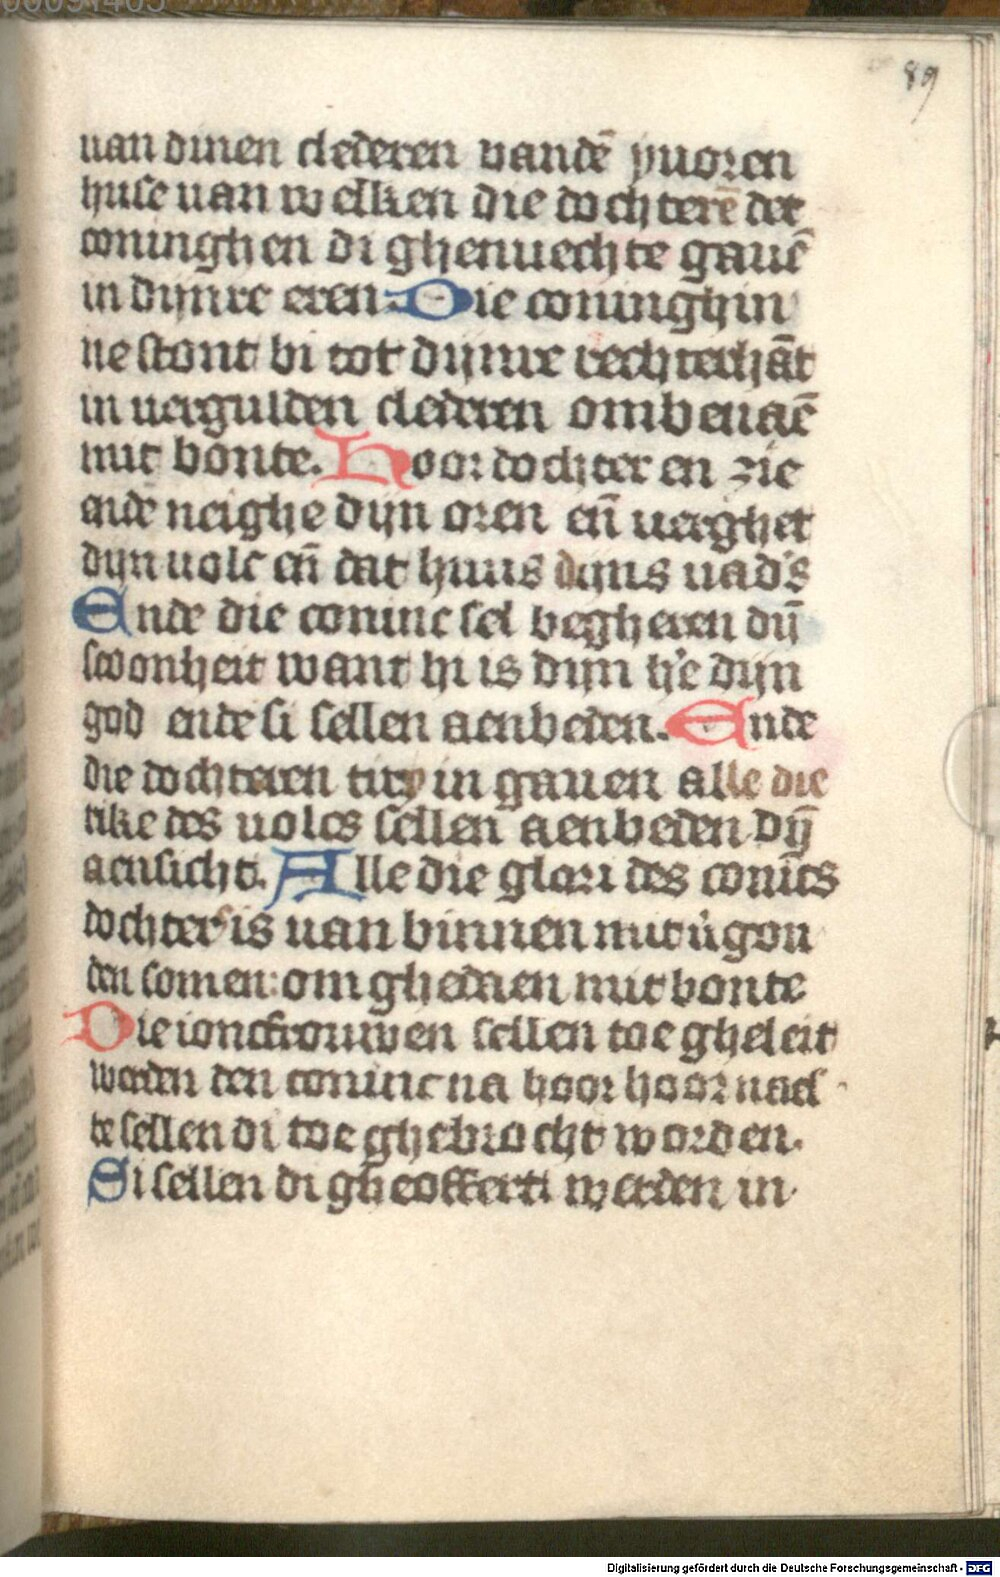 89
uan dinen clederen vandē yuoren
huse uan welken die dochterē der
coninghen di ghenuechte gauē
in dijnre eren Die coninghin
ne stont bi tot dijnre rechterhāt
in uergulden clederen ombeuaē
mit bonte. Hoor dochter en zie
ende neighe dijn oren eñ uerghet
dijn uolc eñ dat huus dijns uad's
Ende die coninc sel begheren dij̄
scoonheit want hi is dijn h'e dijn
god ende si sellen aenbeden. Ende
die dochteren tiry in gauen alle die
rike des uolcs sellen aenbeden dij̄
aensicht. Alle die glori des conīcs
dochter is uan binnen mit u'gou
den somen: om ghedaen mit bonte
Die ioncfrouwen sellen toe gheleit
werden den coninc na hoor hoor nael
te sellen di toe ghebrocht worden.
Si sellen di gheoffert werden in
Digitalisierung gefördert durch die Deutsche Forschungsgemeinschaft - DFG